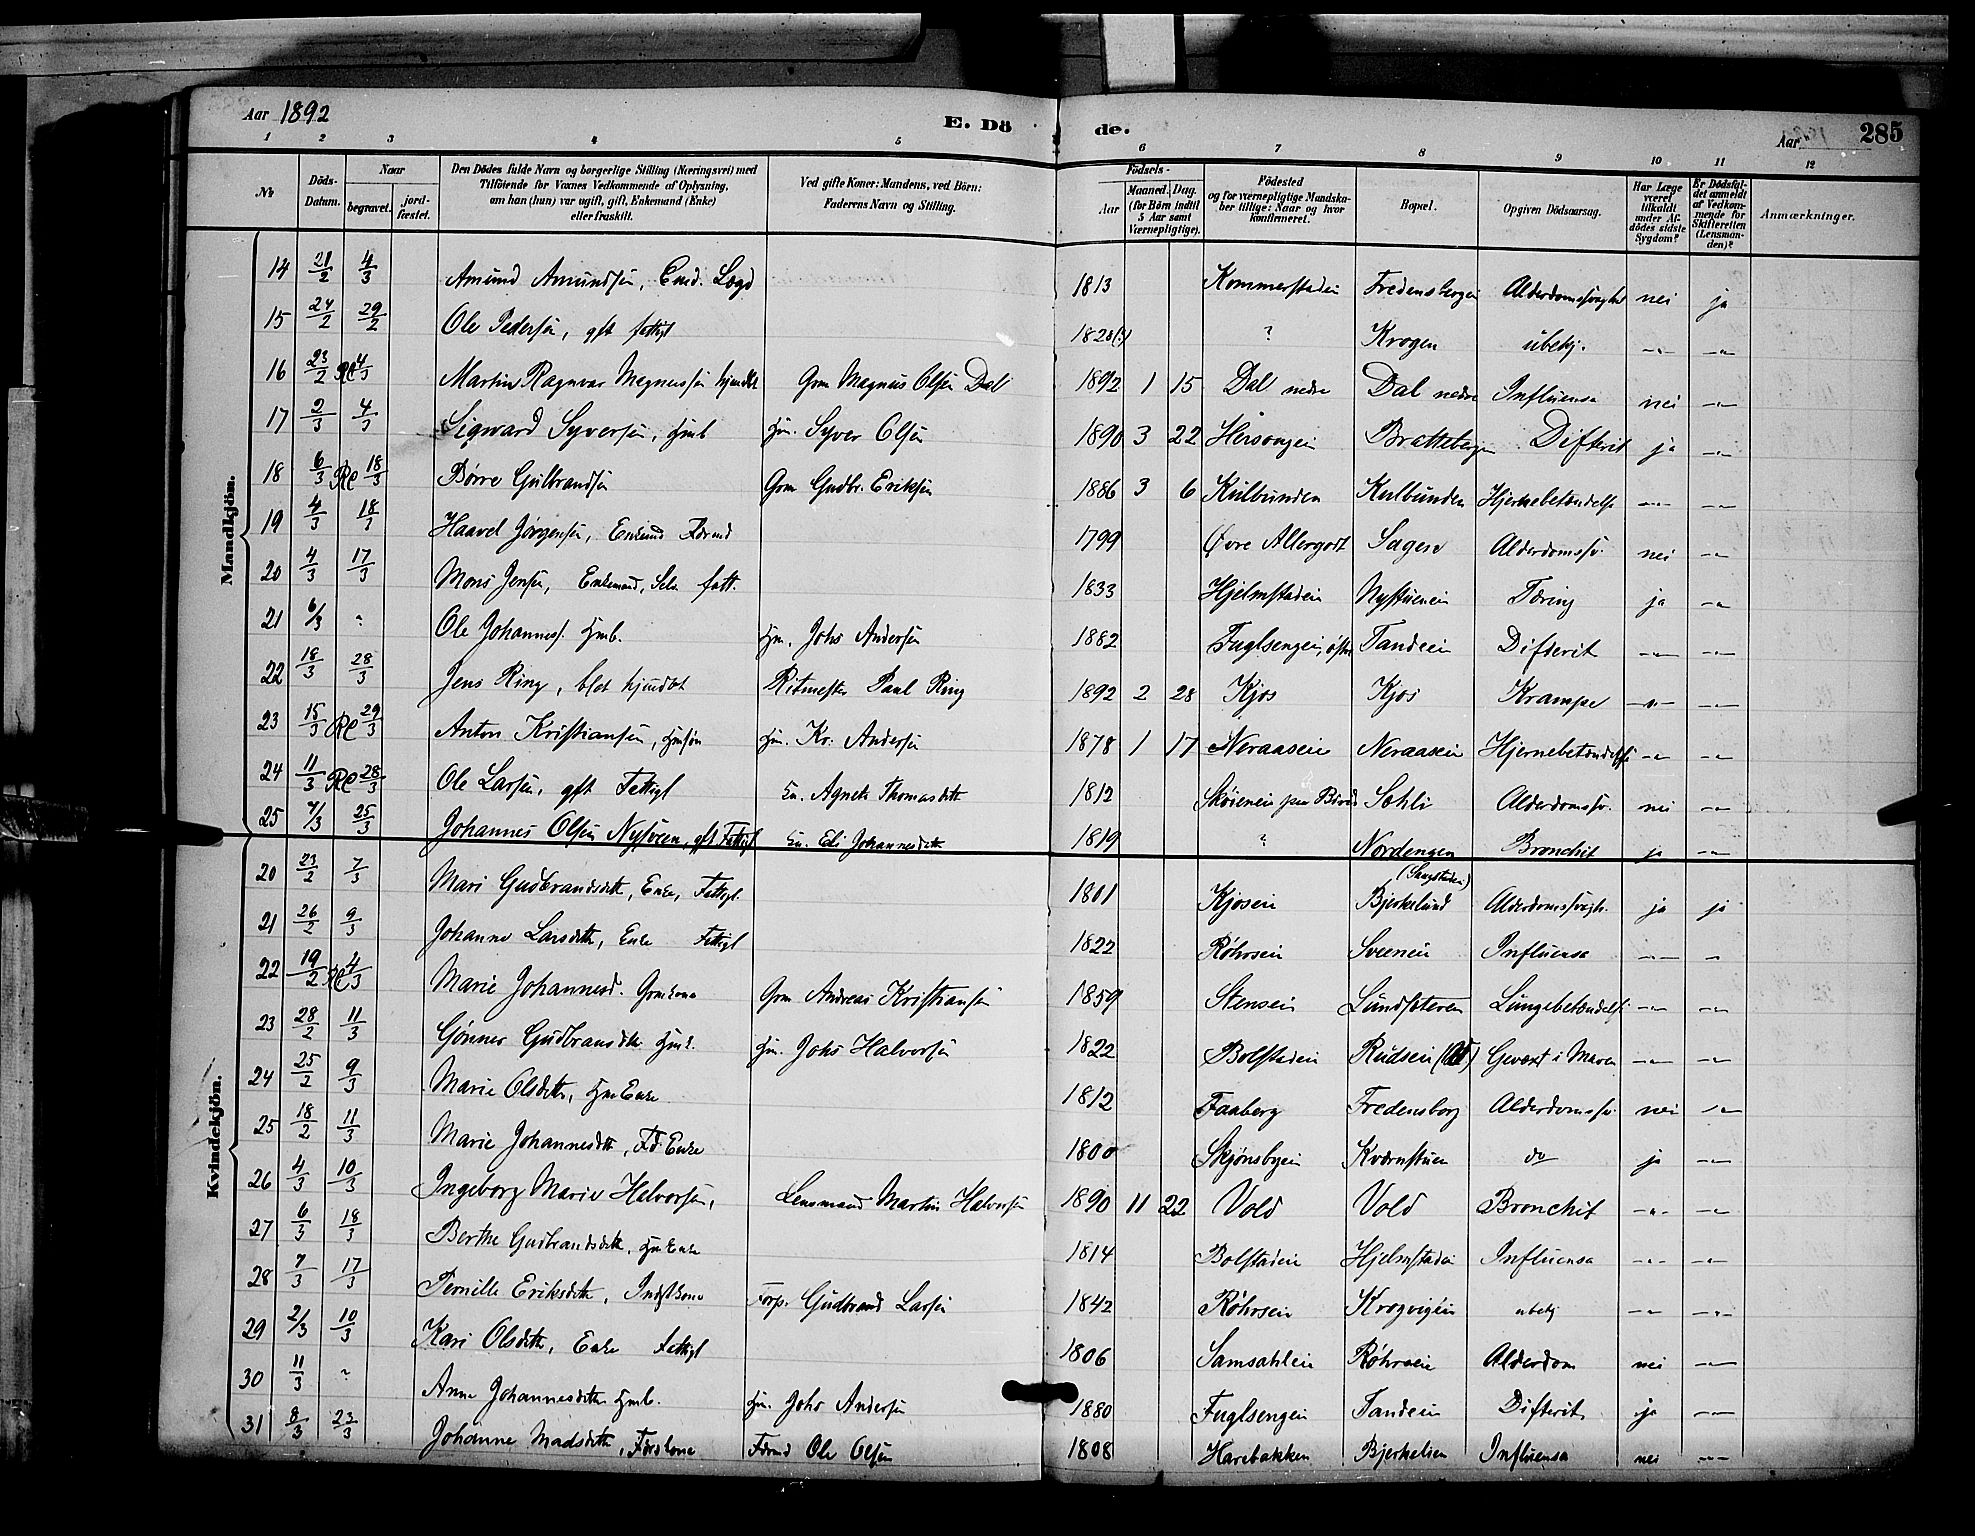 Aar 1892 E. Dö de. Aar 285
1 2 3 4 5 6 7 8 9 10 11 12
№ Döds-Datum. Naar begravet. jord-fæstet. Den Dödes fulde Navn og borgerlige Stilling (Næringsvei) med Tilföiende for Voxnes Vedkommende af Oplysning, om han (hun) var ugift, gift, Enkemand (Enke) eller fraskilt. Ved gifte Koner: Mandens, ved Börn: Faderens Navn og Stilling. Födsels- Aar Maaned. Dag. (for Börn indtil 5 Aar samt Værnepligtige). Födested og for værnepligtige Mandskaber tillige: Naar og hvor konfirmeret. Bopæl. Opgiven Dödsaarsag. Har Læge været tilkaldt under Afdödes sidste Sygdom? Er Dödsfaldet anmeldt af Vedkommende for Skifteretten (Lensmanden)? Anmærkninger.
Mandkjön.
14 21/2 4/3 Amund Amundsen, Enkd. Lægd 1813 Kommerstadeie Fredensborgeie Alderdomssvaghed nei ja
15 24/2 29/2 Ole Pedersen, gift fattigl 1828(?) ? Krogen ubekj. -"- -"-
16 23/2 4/3 Martin Ragnvar Magnussen hjemdøbt Grm Magnus Olsen Dal 1892 1 15 Dal nedre Dal nedre Influensa nei -"-
17 2/3 4/3 Sigward Syversen, Hmb Hm. Syver Olsen 1890 3 22 Difterit ja -"-
18 6/3 18/3 Børre Gulbrandsen Grm Gudbr. Eriksen 1886 3 6 Kulbunden Kulbunden Hjernebetændelse -"-
19 4/3 18/3 Haavel Jørgensen, Enkemd 1799 Øvre Allergodt Sagen Alderdomssv. nei -"-
20 4/3 17/3 Mons Jensen, Enkemand, fatt. 1833 Hjelmstadeie Nystueneie Tæring ja -"-
21 6/3 ? Ole Johanness. Hmb. Hm. Johs Andersen 1882 Fuglsengeie, østre Tandeie Difterit -"- -"-
22 18/3 28/3 Jens Ring, blot hjemdøbt Ritmester Paul Ring 1892 2 28 Kjos Kjos Krampe -"- -"-
23 15/3 29/3 Anton Kristiansen, Hmsøn Hm. Kr. Andersen 1878 1 17 Neraaseie Neraaseie Hjernebetændelse -"- -"-
24 11/3 28/3 Ole Larsen, gift Fattigl En. Agnete Thomasdtt 1812 Skøieneie paa Biri Sæhli Alderdomssv. nei -"-
25 7/3 25/3 Johannes Olsen Nysveen, gift Fattigl En. Eli Johannesdtt 1819 ? Nordengen Bronchit ja -"-
Kvindekjön.
20 23/2 7/3 Mari Gudbrandsdtt, Enke, Fattigl. 1801 Kjoseie (Sangstaden) Bjerkelund Alderdomssvagh. ja ja
21 26/2 9/3 Johanne Larsdtt, Enke Fattigl 1822 Røhrseie Sveeneie Influensa -"- -"-
22 19/2 4/3 Marie Johannesd. Grmkone Grm Andreas Kristiansen 1859 Stenseie Lundsæteren Lungebetændelse -"- -"-
23 28/2 11/3 Gønner Gudbrandsdtt Hmk. Hm. Johs Halvorsen 1822 Bolstadeie Rudseie Gevæxt i Maven -"- -"-
24 25/2 9/3 Marie Olsdtt, HmEnke 1812 Faaberg Fredensborg Alderdomssv. nei -"-
25 18/2 11/3 Marie Johannesdtt, Fd. Enke 1800 Skjønsbyeie Kværnstuen do ja -"-
26 4/3 10/3 Ingeborg Marie Halvorsen, Lensmand Martin Halvorsen 1890 11 22 Vold Vold Bronchit -"- -"-
27 6/3 18/3 Berthe Gudbrandsdtt, HmEnke 1814 Bolstadeie Hjelmstadeie Influensa -"- -"-
28 7/3 17/3 Pernille Eriksdtt, Indstkone Forp. Gudbrand Larsen 1842 Røhrseie Krogvigeie ubekj -"- -"-
29 2/3 10/3 Kari Olsdtt, Enke Fattigl 1806 Samsahleie Røhrseie Alderdom nei -"-
30 11/3 ? Anne Johannesdtt Hmb. Hm. Johs Andersen 1880 Fuglsengeie Tandeie Difterit ja -"-
31 8/3 23/3 Johanne Madsdtt, Førdkone Førmd Ole Olsen 1808 Harebakken Bjerkelien Influensa nei -"-